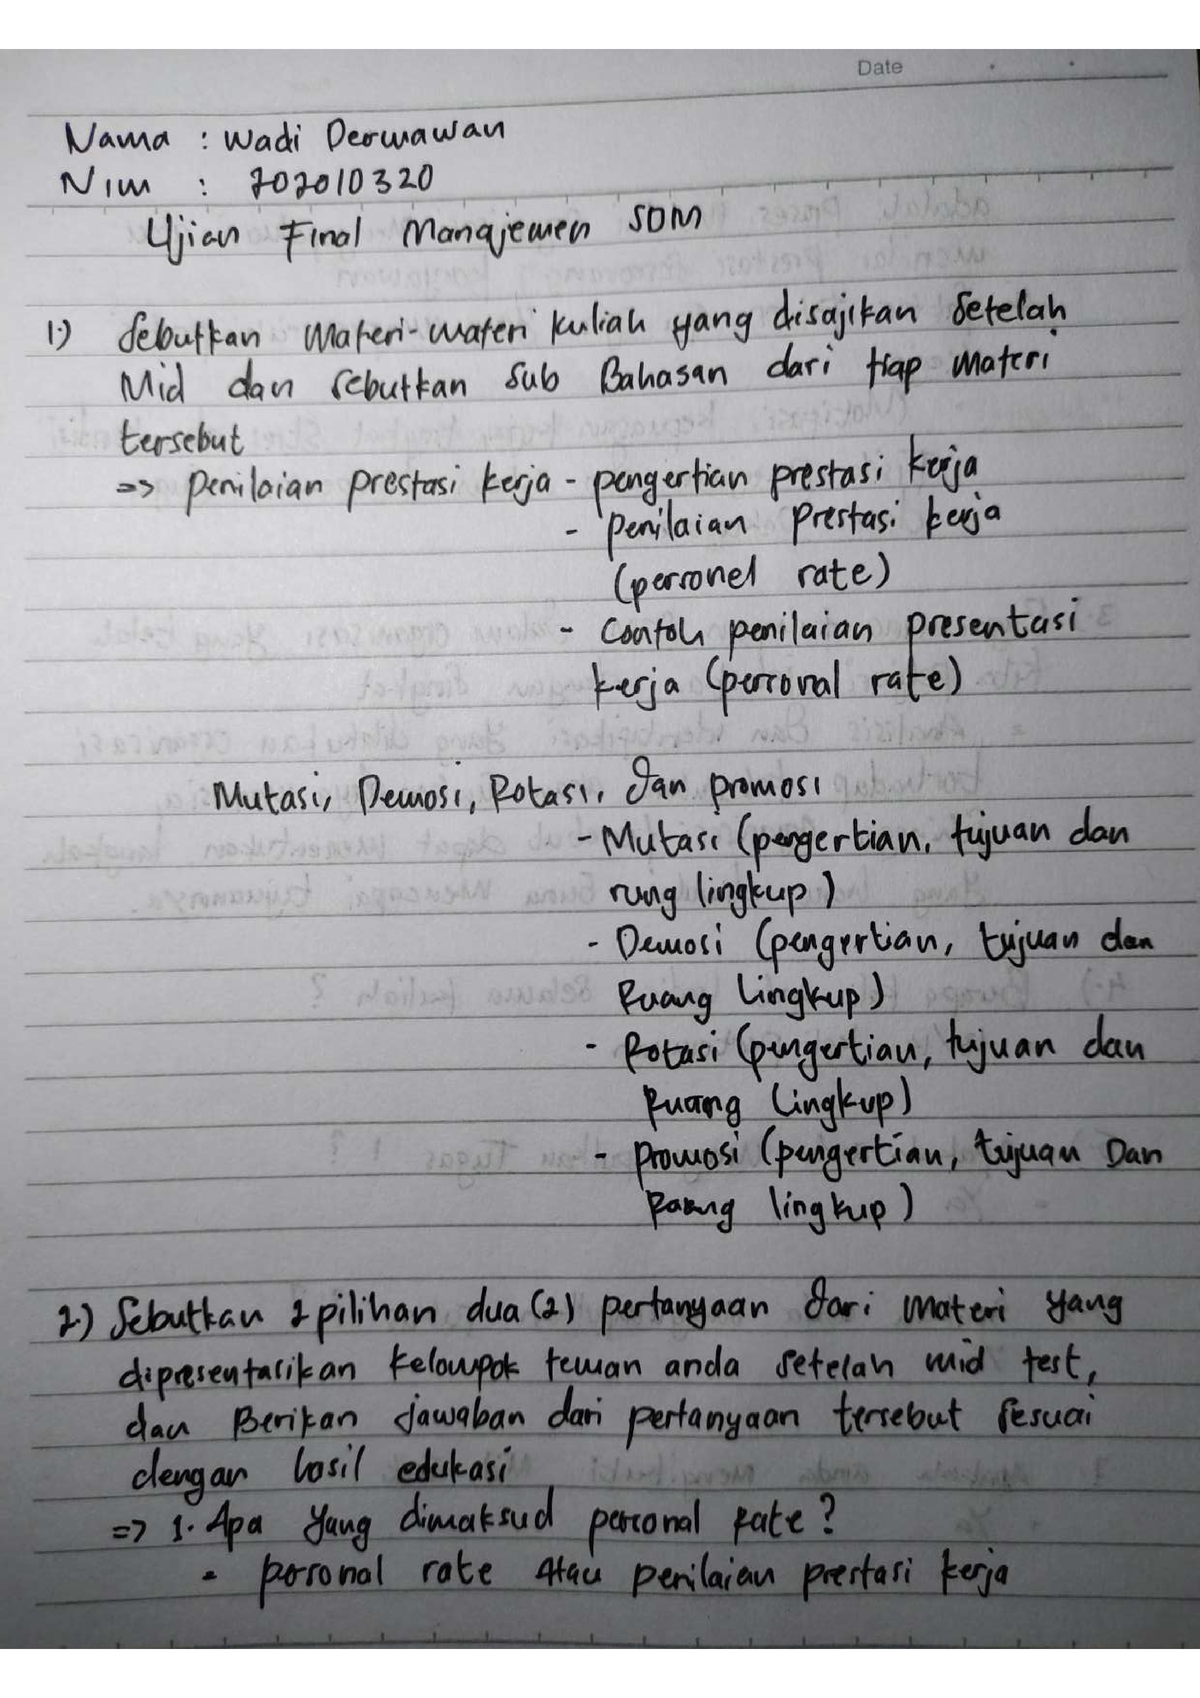 Date
Nama : Wadi Dermawan
Nim : 202010320
Ujian Final Manajemen SDM
1.) Sebutkan Materi-materi kuliah yang disajikan Setelah
Mid dan sebutkan Sub Bahasan dari tiap Materi
tersebut
=> penilaian prestasi kerja - pengertian prestasi kerja
- penilaian prestasi kerja
(personel rate)
- Contoh penilaian presentasi
kerja (personal rate)
Mutasi, Demosi, Rotasi, dan promosi
- Mutasi (pengertian, tujuan dan
rung lingkup)
- Demosi (pengertian, tujuan dan
Ruang Lingkup)
- Rotasi (pengertian, tujuan dan
Ruang Lingkup)
- promosi (pengertian, tujuan Dan
Raung lingkup)
2.) Sebutkan 2 pilihan dua (2) pertanyaan dari materi yang
dipresentasikan kelompok teman anda setelah mid test,
dan Berikan jawaban dari pertanyaan tersebut sesuai
dengan hasil edukasi
=> 1. Apa yang dimaksud personal rate?
- porsonal rate Atau penilaian prestasi kerja